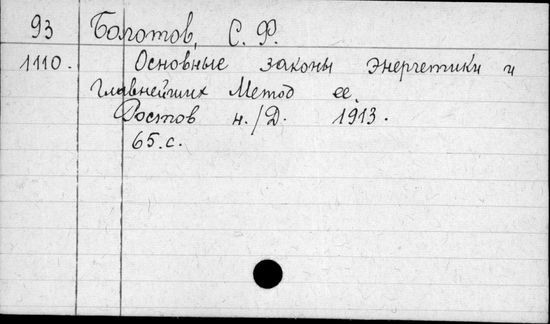 93 Болотов, С. Ф.
1110. Основные законы энергетики и
главнейших Метод ее.
Ростов н./Д. 1913.
65.с.